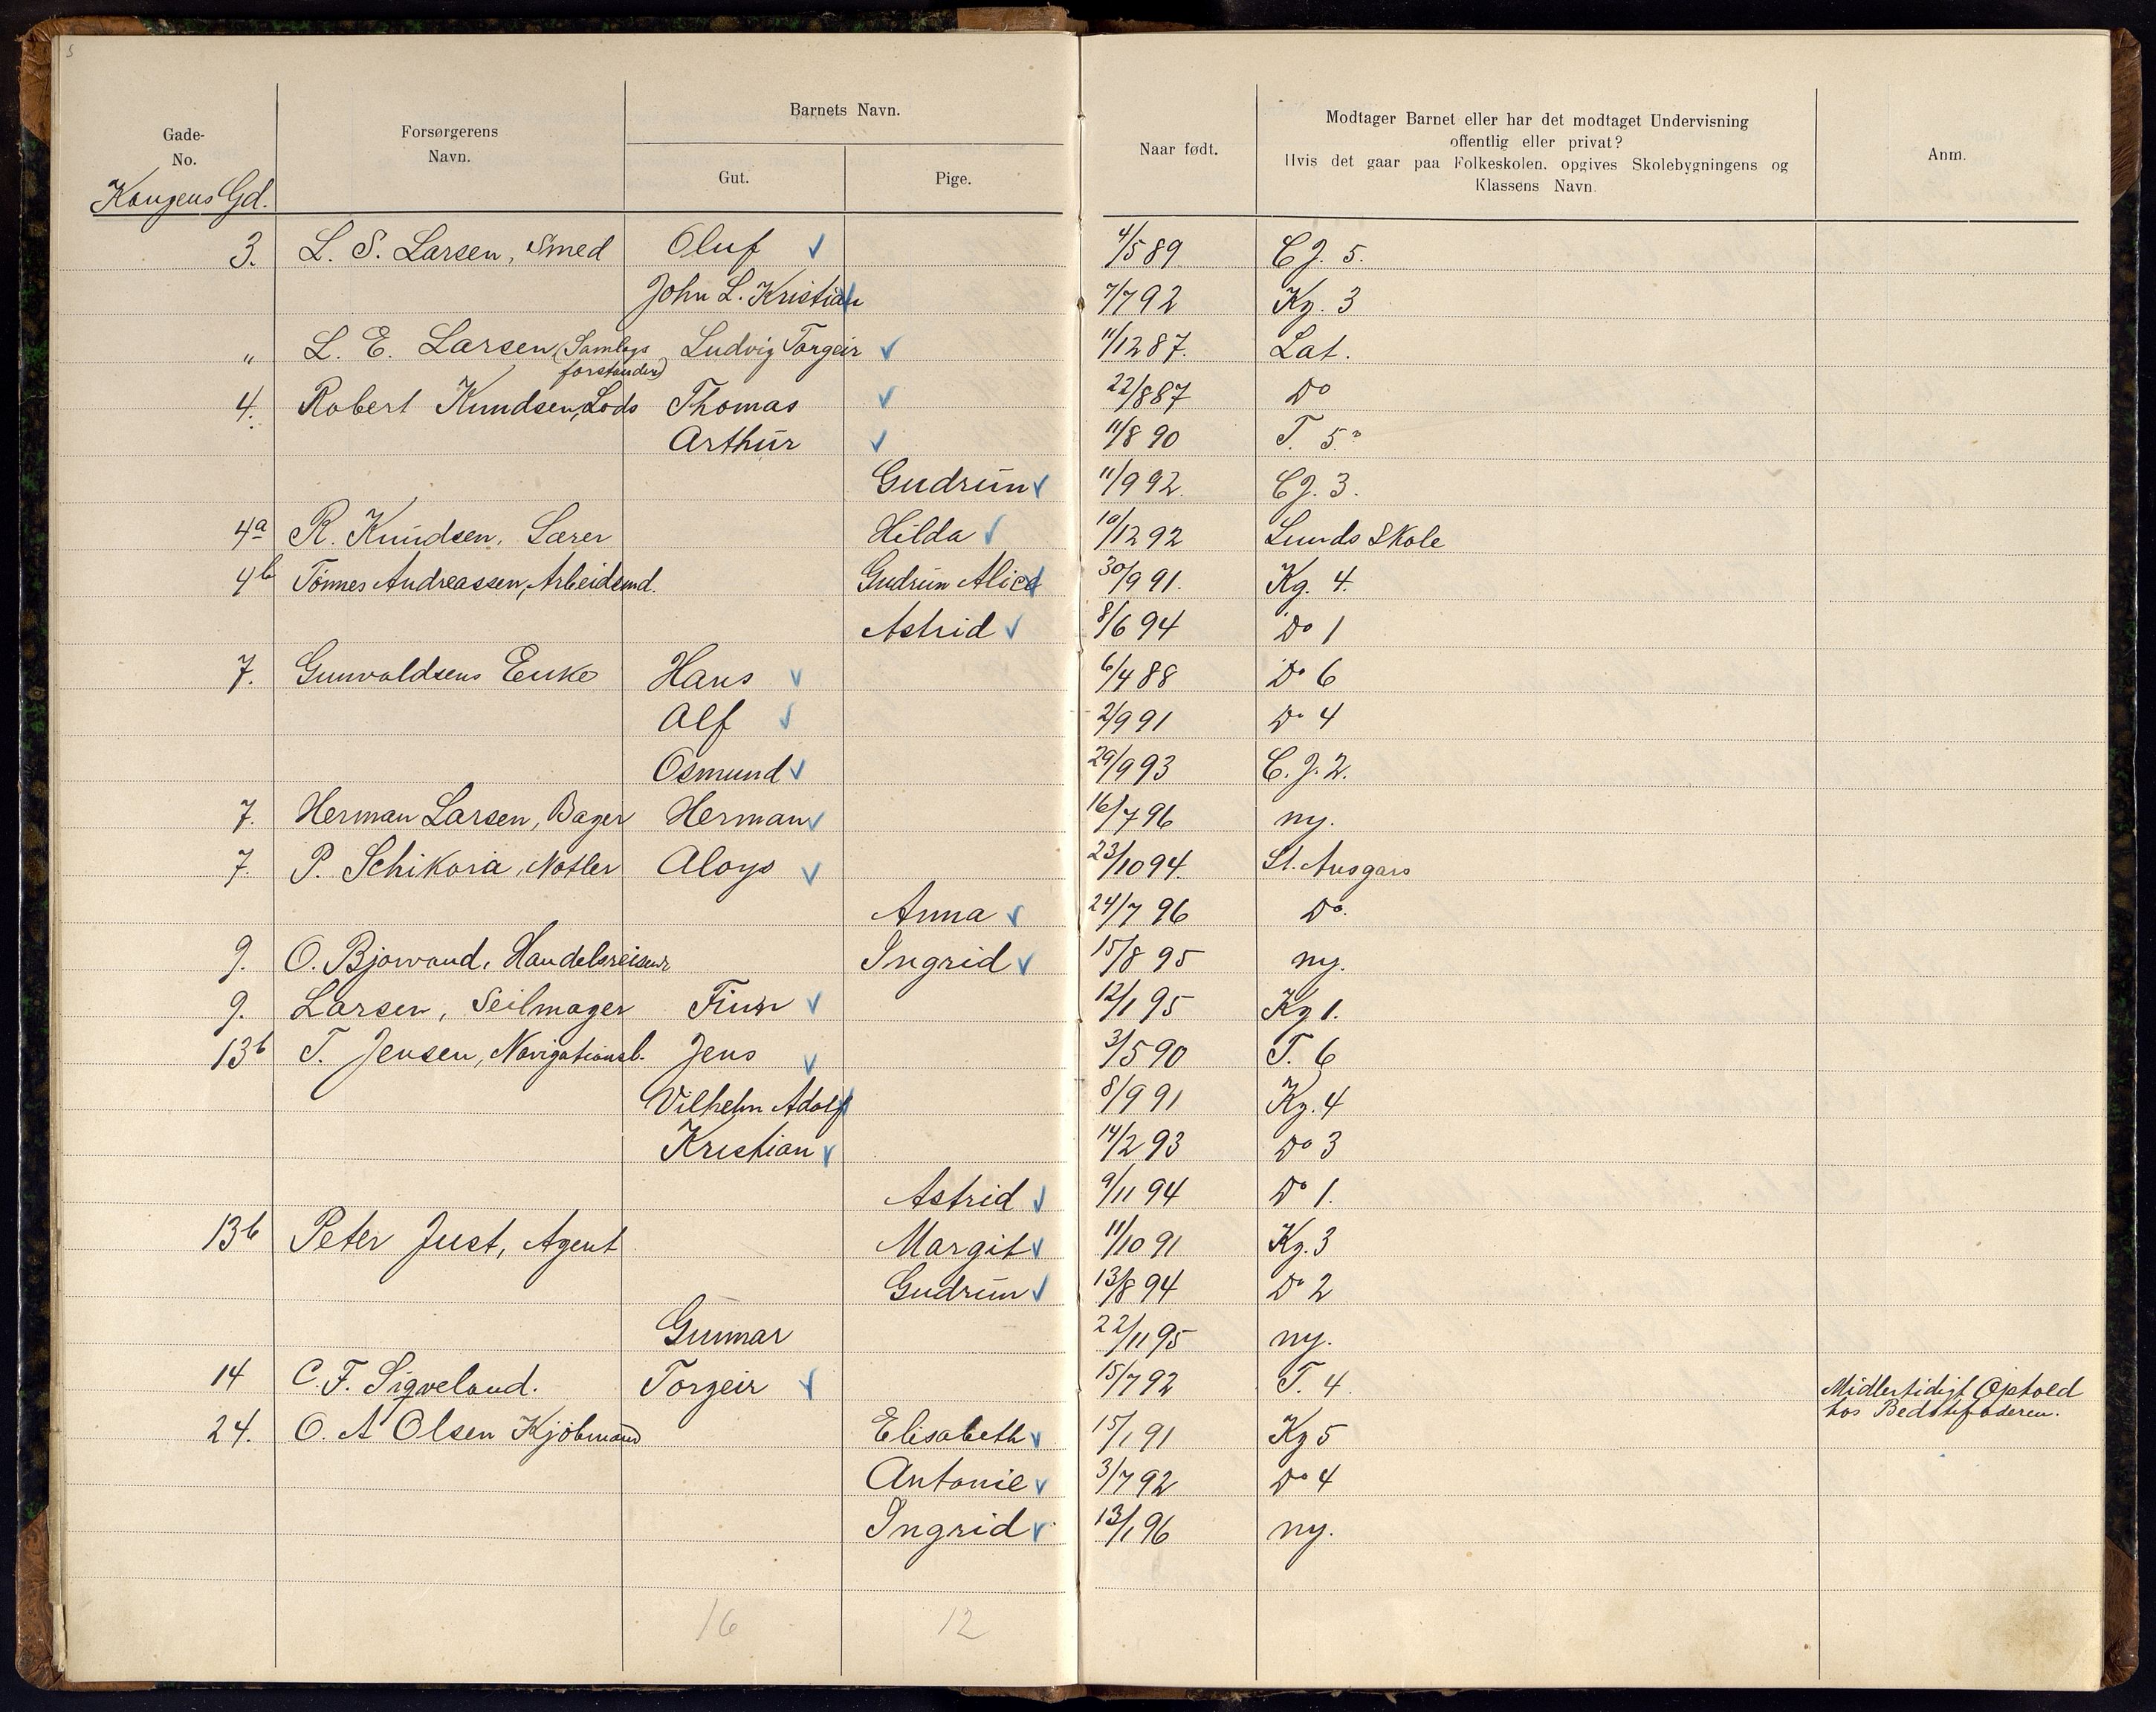 Gade-
No.
Forsørgerens
Navn.
Barnets Navn.
Gut.
Pige.
Naar født.
Modtager Barnet eller har det modtaget Undervisning
offentlig eller privat?
Hvis det gaar paa Folkeskolen, opgives Skolebygningens og
Klassens Navn.
Anm.
Kongens Gd.
3. L. S. Larsen, Smed Oluf 4/5 89 C J. 5.
John L. Kristian 7/7 92 Kg. 3
" L. E. Larsen (Samlags Ludvig Torgeir 11/12 87. Lat.
forstander)
4. Robert Knudsen, Lods Thomas 22/8 87 Do
Arthur 11/8 90 T. 5
Gudrun 11/9 92. C J. 3.
4a R. Knudsen, Lærer Hilda 10/12 92 Lunds Skole
4b Tønnes Andreassen, Arbeidsmd. Gudrun Alice 30/9 91. Kg. 4.
Astrid 8/6 94 Do 1
7. Gunvaldsens Enke Hans 6/4 88 Do 6
Alf 2/9 91 Do 4
Osmund 29/9 93 C. J. 2.
7. Herman Larsen, Bager Herman 16/7 96 ny.
7. P. Schikora, Notler Aloys 23/10 94. St. Ansgars
Anna 24/7 96 Do.
9. O. Bjorvand, Handelsreisende Ingrid 15/8 95 ny.
9. Larsen, Seilmager Finn 12/1 95 Kg 1.
13b T. Jensen, Navigationsb. Jens 3/5 90 T. 6
Vilhelm Adolf 8/9 91 Kg. 4
Kristian 14/2 93 Do 3
Astrid 9/11 94 Do 1.
13b Peter Just, Agent Margit 11/10 91 Kg. 3
Gudrun 13/8 94 Do 2
Gunnar 22/11 95 ny.
14 C. F. Sigveland. Torgeir 15/7 92 T. 4. Midlertidigt Ophold
hos Bedstefaderen.
24. O. A Olsen Kjøbmand Elisabeth 15/1 91 Kg 5
Antonie 3/7 92 Do 4
Ingrid 13/1 96 ny.
16 12